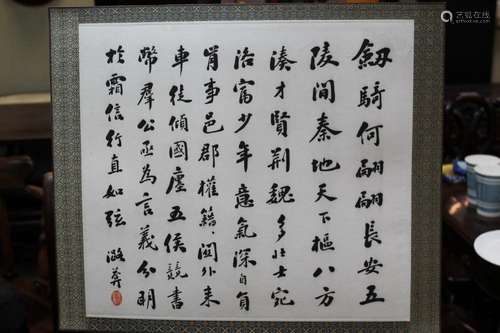 劔騎何翩翩長安五
陵間秦地天下樞八方
湊才賢荊魏多壯士宛
洛富少年意氣深自負
肯事邑郡權籍、関外来
車徒傾國廛五侯競書
幣羣公亟為言義分明
於霜信行直如弦